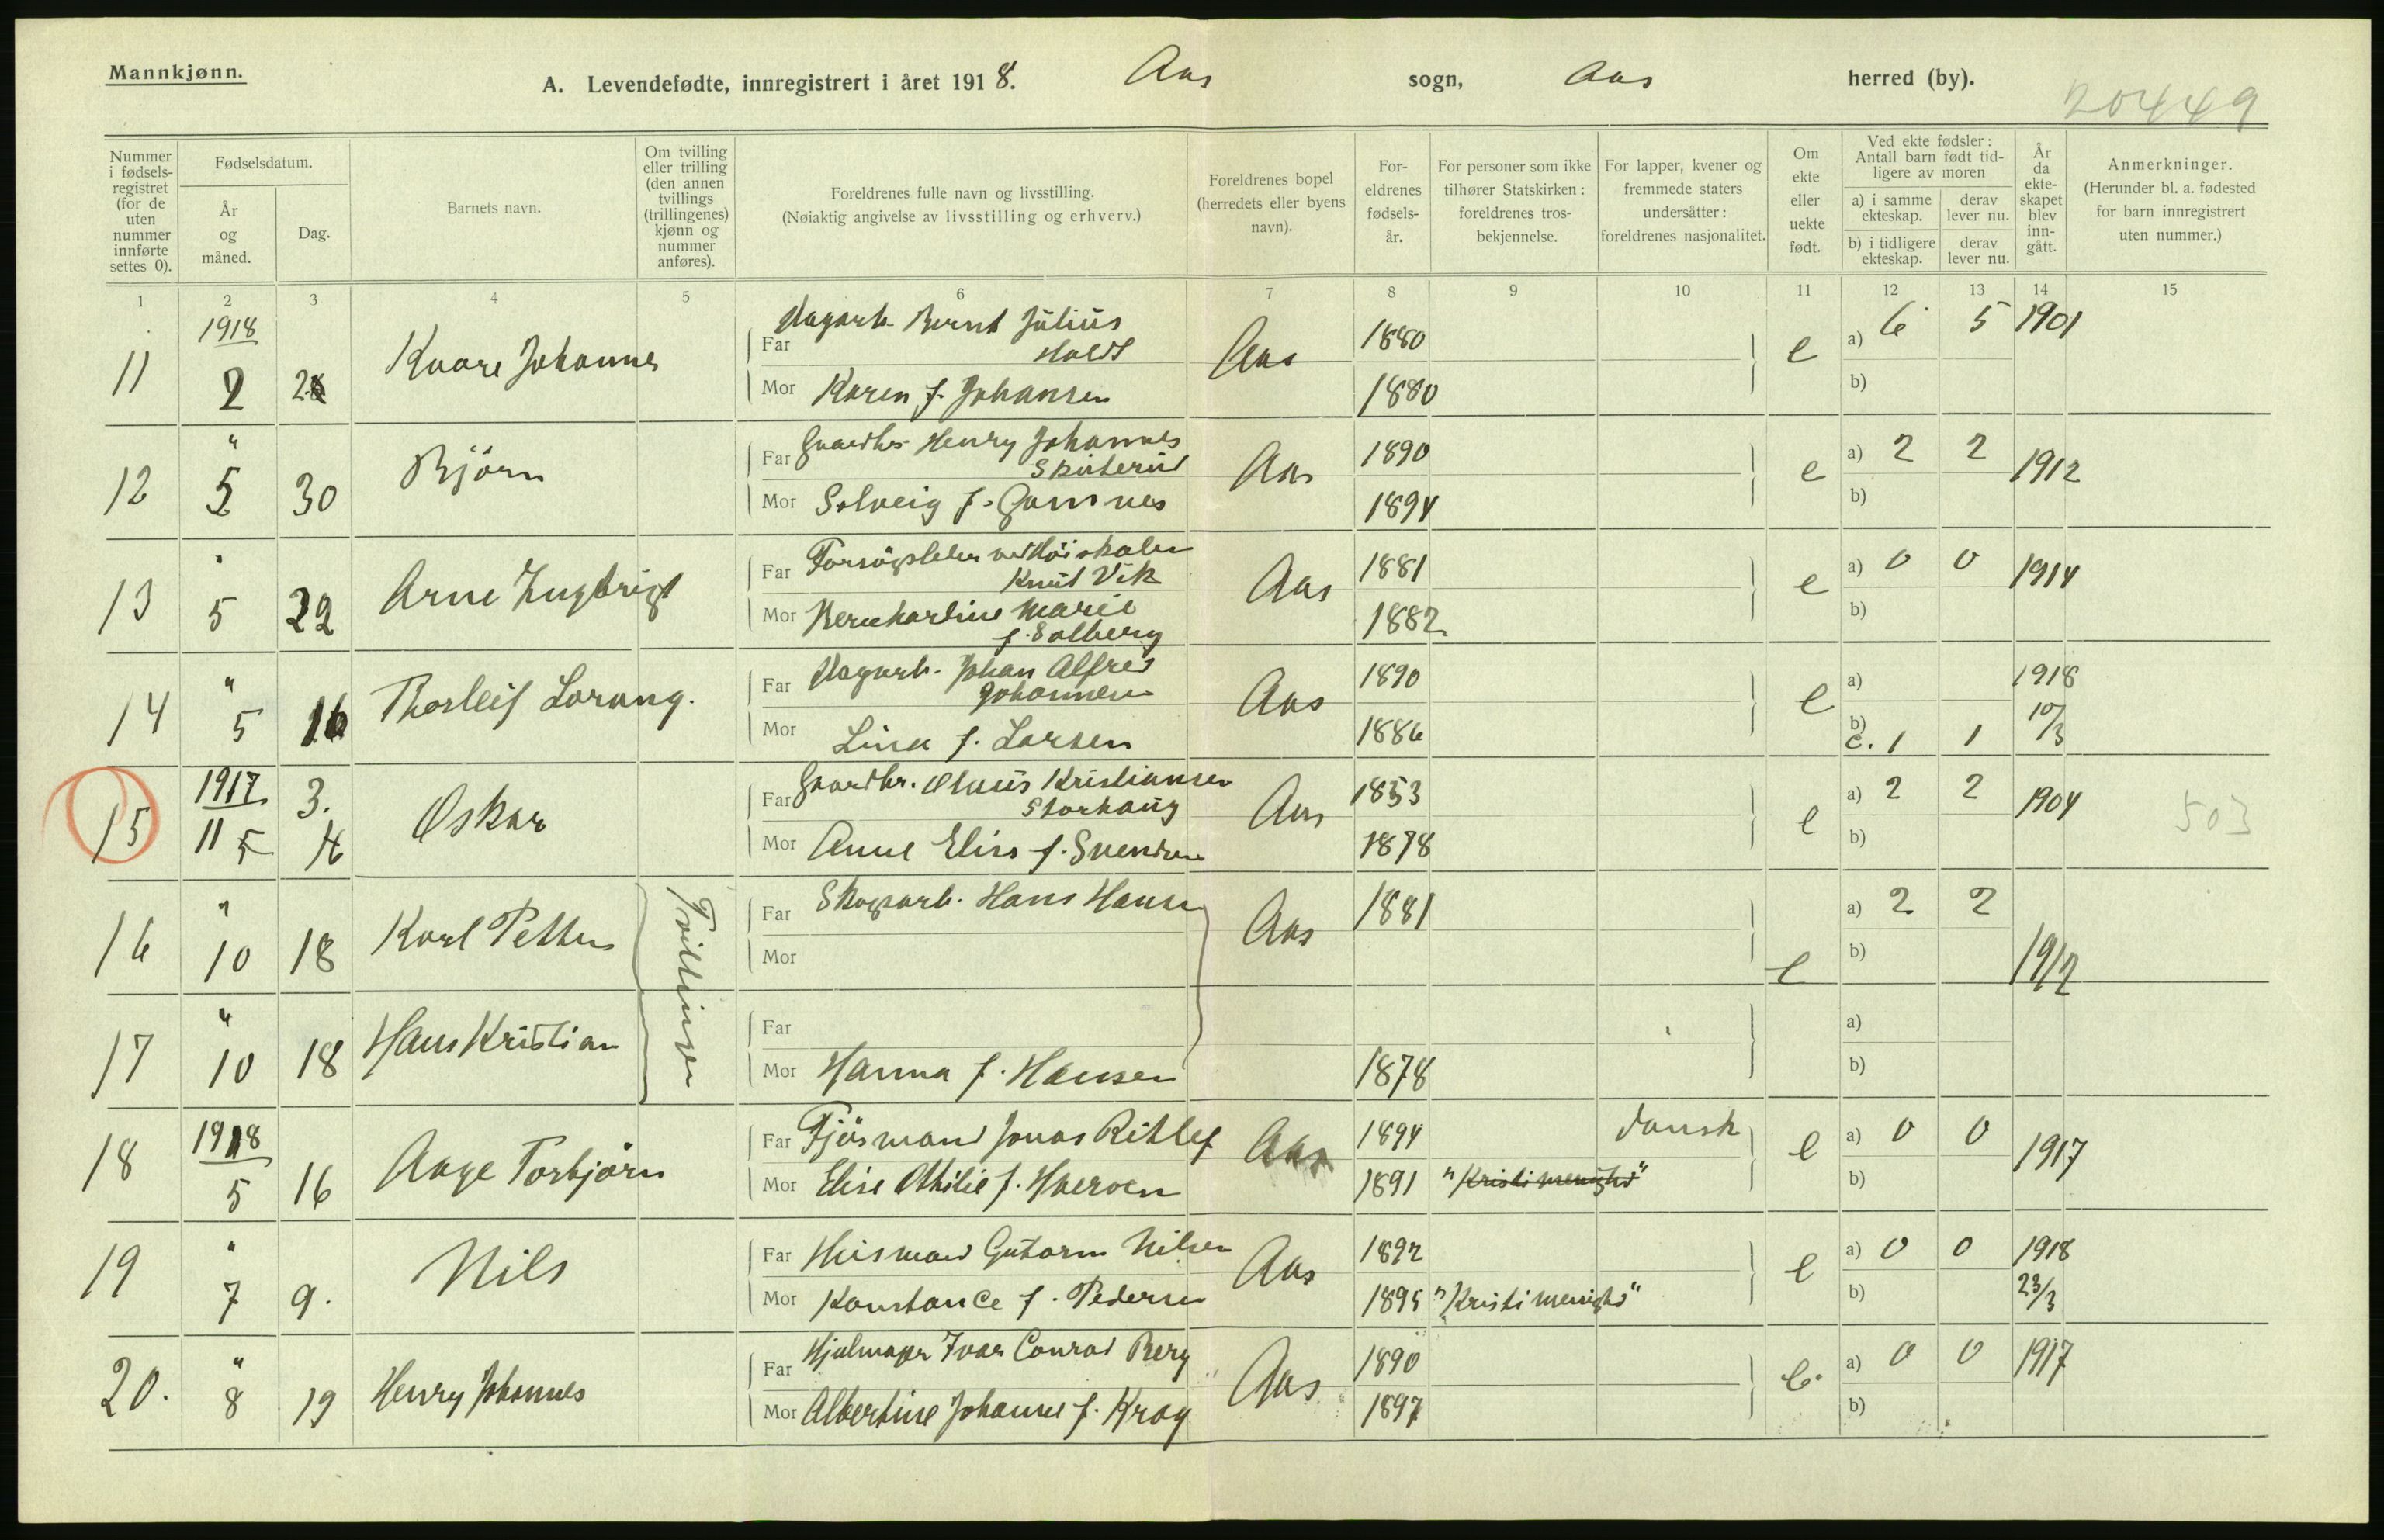 Mannkjønn.
A. Levendefødte, innregistrert i året 1918. Aas sogn, Aas herred (by).
20449
Nummer i fødsels-registret (for de uten nummer innførte settes 0).
Fødselsdatum.
År og måned.
Dag.
Barnets navn.
Om tvilling eller trilling (den annen tvillings (trillingenes) kjønn og nummer anføres).
Foreldrenes fulle navn og livsstilling.
(Nøiaktig angivelse av livsstilling og erhverv.)
Foreldrenes bopel (herredets eller byens navn).
For-eldrenes fødsels-år.
For personer som ikke tilhører Statskirken: foreldrenes tros-bekjennelse.
For lapper, kvener og fremmede staters undersåtter: foreldrenes nasjonalitet.
Om ekte eller uekte født.
Ved ekte fødsler: Antall barn født tid-ligere av moren
a) i samme ekteskap.
derav lever nu.
b) i tidligere ekteskap.
derav lever nu.
År da ekte-skapet blev inn-gått.
Anmerkninger.
(Herunder bl. a. fødested for barn innregistrert uten nummer.)
1 2 3 4 5 6 7 8 9 10 11 12 13 14 15
11 1918 2 Kaare Johannes
Far Dagarb. Bernt Julius Holst Aas 1880 e a) 6 5 1901
Mor Karen f. Johansen 1880 b)
12 " 5 30 Bjørn
Far Gaardbr. Henry Johannes Skuterud Aas 1890 e a) 2 2 1912
Mor Solveig f. 1894 b)
13 " 5 22 Arne Ingbrigt
Far Forsøgsleder ved Høiskolen Knut Vik Aas 1881 e a) 0 0 1914
Mor Bernhardine Marie f. Solberg 1882 b)
14 " 5 16 Thorleif Lorang.
Far Dagarb. Johan Alfred Johannesen Aas 1890 e a) 1918
Mor Lina f. Larsen 1886 b) c. 1 1 10/3
15 1917 11 5 3. Oskar
Far Gaardbr. Olaus Kristiansen Storhaug Aas 1853 e a) 2 2 1904 503
Mor Anne Elise f. Svendsen 1878 b)
16 " 10 18 Karl Petter Tvillinger
Far Skogsarb. Hans Hansen Aas 1881 e a) 2 2 1912
Mor b)
17 " 10 18 Hans Kristian
Far a)
Mor Hanna f. Hansen 1878 b)
18 1918 5 16 Aage Torbjørn
Far Fjøsmand Jonas Ritlef Aas 1894 dansk e a) 0 0 1917
Mor Elise Othilie f. Hverven 1891 "Kristi menighd" b)
19 " 7 9. Nils
Far Husmand Gutorm Nilsen Aas 1892 e a) 0 0 1918
Mor Konstance f. Pedersen 1895 "Kristi menighd" b) 23/3
20. " 8 19 Henry Johannes
Far Hjulmager Ivar Conrad Berg Aas 1890 e. a) 0 0 1917
Mor Albertine Johanne f. Krog 1897 b)